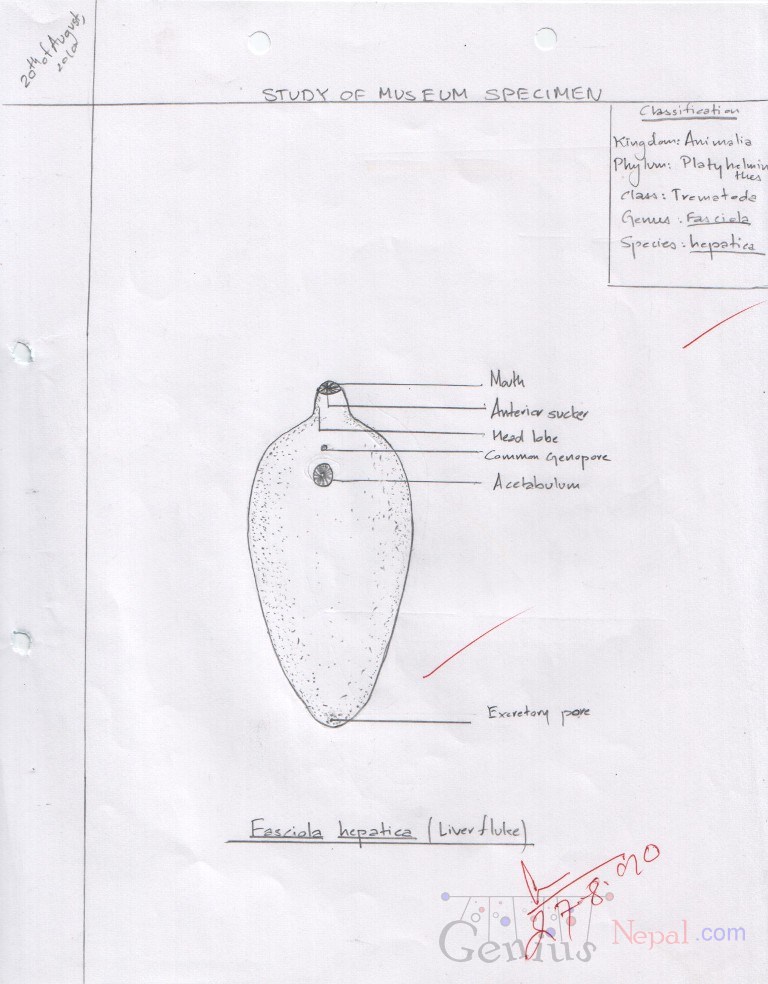 20th of August,
2010
STUDY OF MUSEUM SPECIMEN
Classification
Kingdom: Animalia
Phylum: Platyhelmin
thes
Class: Trematoda
Genus: Fasciola
Species: hepatica
Mouth
Anterior sucker
Head lobe
Common Genopore
Acetabulum
Excretory pore
Fasciola hepatica (Liver fluke)
27-8-
Genius Nepal.com